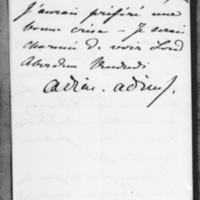 J'aurai préféré une
bonne crise - Je serai
charmée de voir Lord
Aberdeen Vendredi
adieu. adieu.